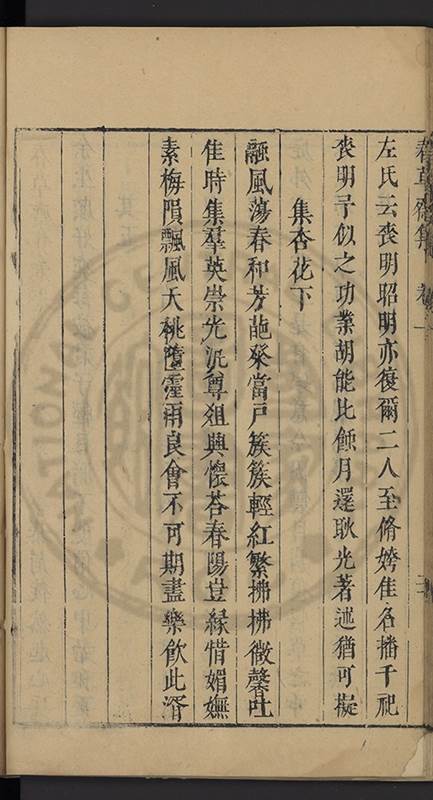 左氏云喪明昭明亦復爾二人至脩姱佳名播千祀
喪明予似之功業胡能比蝕月還耿光著述猶可擬
集杏花下
融風蕩春和芳葩發當戶簇簇輕紅繁拂拂微馨吐
佳時集羣英崇光泥尊俎興懷荅春陽豈緣惜媚嫵
素梅隕飄風夭桃墮霪雨良會不可期盡樂飲此湑